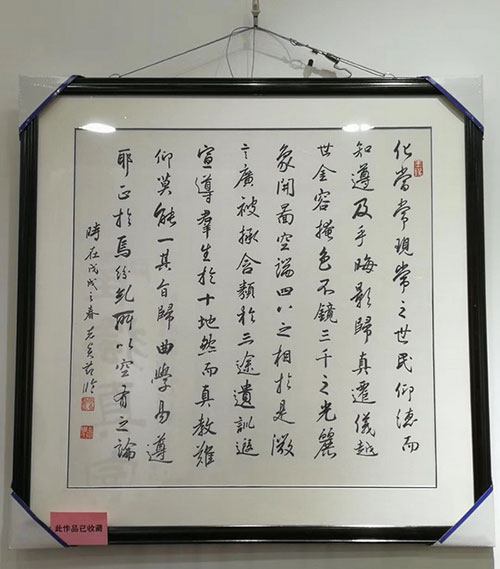 化當常現常之世民仰德而
知遵及乎晦影歸真遷儀越
世金容掩色不鏡三千之光麗
象開圖空端四八之相於是微
言廣被拯含類於三途遺訓遐
宣導羣生於十地然而真教難
仰莫能一其旨歸曲學易遵
耶正於焉紛糺所以空有之論
時在戊戌之春
此作品已收藏